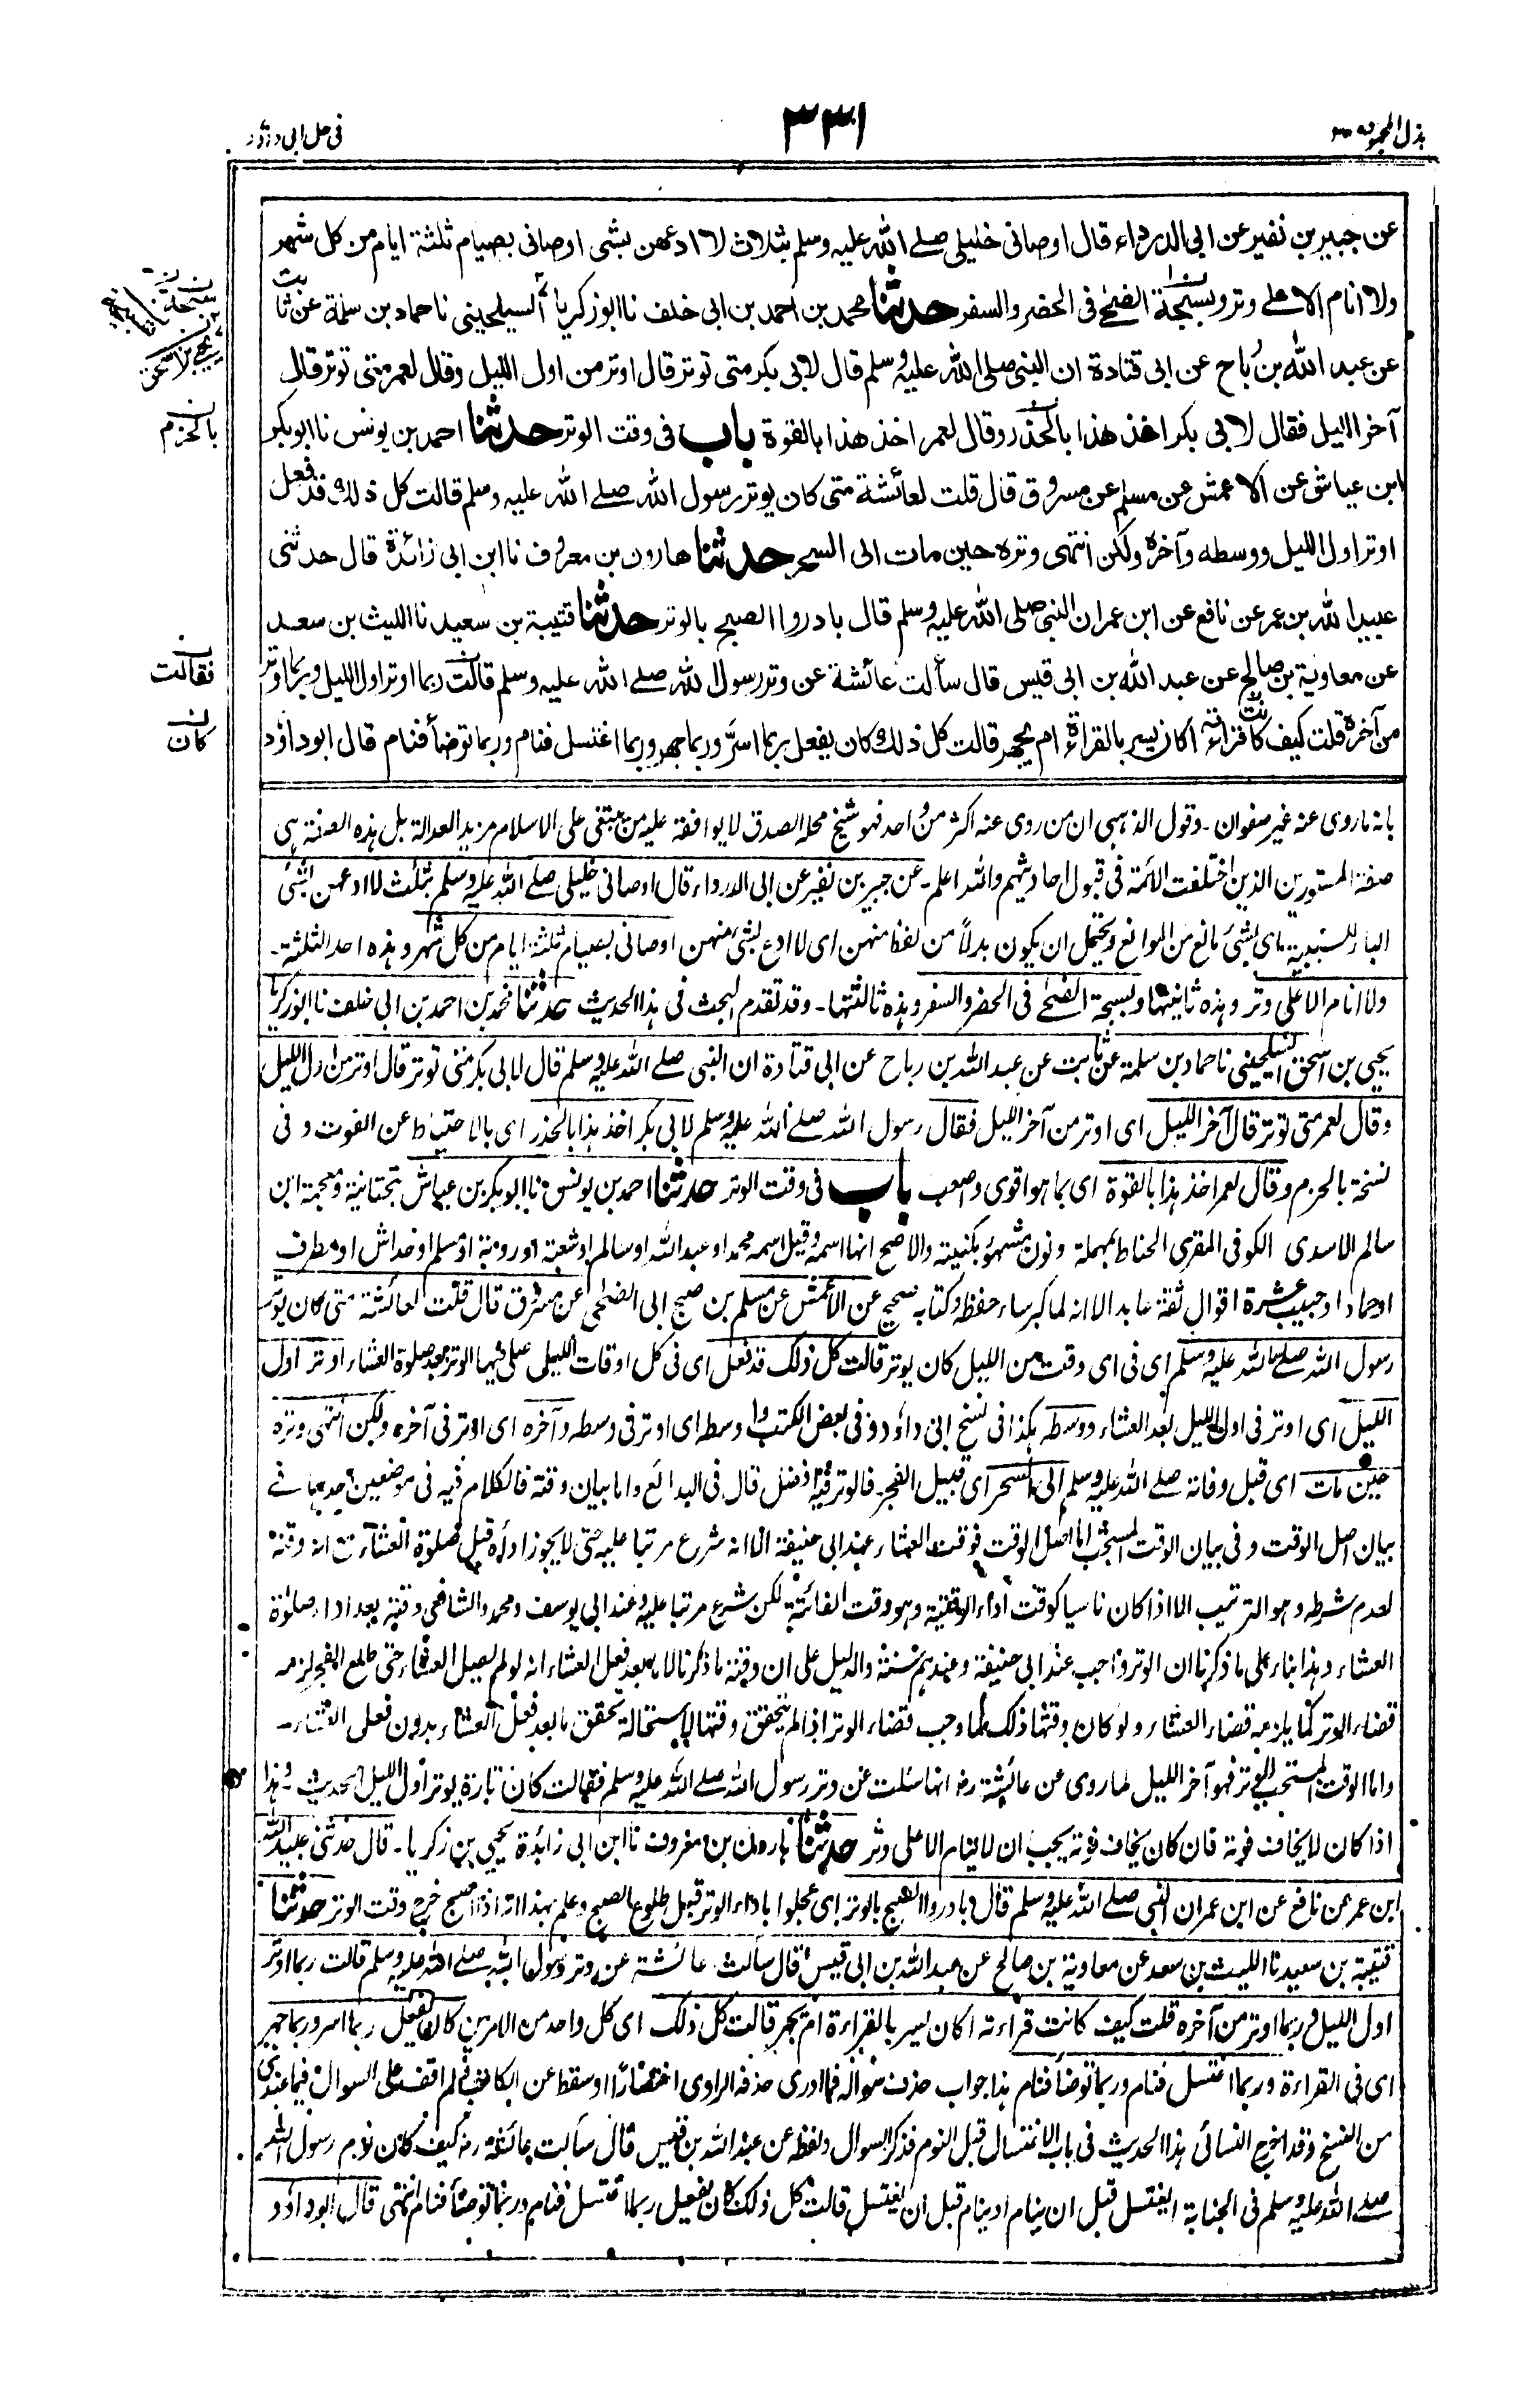 بذل المجهود
٣٣١
فى حل ابى داؤد
عن جبير بن نفير عن ابى الدرداء قال اوصانى خليلى صلے الله عليه وسلم بثلاث لا ادعهن بشى اوصانى بصيام ثلثة ايام من كل شهر
ولا انام الا على وتر وبسبحة الضحے فى الحضر والسفر حدثنا محمد بن احمد بن ابى خلف نا ابو زكريا السيلحينى نا حماد بن سلمة عن ثابت
عن عبد الله بن رباح عن ابى قتادة ان النبى صلى الله عليه وسلم قال لابى بكر متى توتر قال اوتر من اول الليل وقال لعمر متى توتر قال
آخر الليل فقال لابى بكر اخذ هذا بالحذر وقال لعمر اخذ هذا بالقوة باب فى وقت الوتر حدثنا احمد بن يونس نا ابو بكر
ابن عياش عن الاعمش عن مسلم عن مسروق قال قلت لعائشة متى كان يوتر رسول الله صلے الله عليه وسلم قالت كل ذلك قد فعل
اوتر اول الليل ووسطه وآخره ولكن انتهى وتره حين مات الى السحر حدثنا هارون بن معروف نا ابن ابى زائدة قال حدثنى
عبيد الله بن عمر عن نافع عن ابن عمر ان النبى صلى الله عليه وسلم قال بادروا الصبح بالوتر حدثنا قتيبة بن سعيد نا الليث بن سعد
عن معاوية بن صالح عن عبد الله بن ابى قيس قال سألت عائشة عن وتر رسول الله صلے الله عليه وسلم قالت ربما اوتر اول الليل وربما اوتر
من آخره قلت كيف كانت قراءته اكان يسر بالقراءة ام يجهر قالت كل ذلك كان يفعل ربما اسرّ وربما جهر وربما اغتسل فنام وربما توضأ فنام قال ابو داؤد
ن سبحة
ن يحيى بن اسحق
ن بالحزم
ن فقالت
ن كان
بانه ما روى عنه غير صفوان ـ وقول الذهبى ان من روى عنه اكثر من واحد فهو شيخ محله الصدق لا يوافقه عليه من يبتغى على الاسلام مزيد العدالة بل هذه الصفة هى
صفة المستورين الذين اختلفت الائمة فى قبول احاديثهم والله اعلم ـ عن جبير بن نفير عن ابى الدرداء قال اوصانى خليلى صلے الله عليه وسلم بثلث لا ادعهن لشئ
الباء للسببية اى بشئ مانع من الموانع ويحتمل ان يكون بدلاً من لفظ منهن اى لا ادع بشئ منهن اوصانى بصيام ثلثة ايام من كل شهر وهذه احد الثلثة ـ
ولا انام الا على وتر وهذه ثانيتها وبسبحة الضحے فى الحضر والسفر وهذه ثالثتها ـ وقد تقدم البحث فى هذا الحديث حدثنا محمد بن احمد بن ابى خلف نا ابو زكريا
يحيى بن اسحق السيلحينى نا حماد بن سلمة عن ثابت عن عبد الله بن رباح عن ابى قتادة ان النبى صلے الله عليه وسلم قال لابى بكر متى توتر قال اوتر من اول الليل
وقال لعمر متى توتر قال آخر الليل اى اوتر من آخر الليل فقال رسول الله صلے الله عليه وسلم لابى بكر اخذ هذا بالحذر اى بالاحتياط عن الفوت وفى
نسخة بالحزم وقال لعمر اخذ هذا بالقوة اى بما هو اقوى واصعب باب فى وقت الوتر حدثنا احمد بن يونس نا ابو بكر بن عياش بتحتانية ومعجمة ابن
سالم الاسدى الكوفى المقرى الحناط بمهملة ونون مشهور بكنيته والاصح انها اسمه وقيل اسمه محمد او عبد الله او سالم او شعبة او روبة او مسلم او خداش او مطرف
او حماد او حبيب عشرة اقوال ثقة عابد الا انه لما كبر ساء حفظه وكتابه صحيح عن الاعمش عن مسلم بن صبيح ابى الضحى عن مسروق قال قلت لعائشة متى كان يوتر
رسول الله صلے الله عليه وسلم اى فى اى وقت من الليل كان يوتر قالت كل ذلك قد فعل اى فى كل اوقات الليل صلى فيها الوتر بعد صلوة العشاء اوتر اول
الليل اى اوتر فى اول الليل بعد العشاء ووسطه هكذا فى نسخ ابى داؤد وفى بعض الكتب واوسطه اى اوتر فى وسطه وآخره اى اوتر فى آخره ولكن انتهى وتره
حين مات اى قبل وفاته صلے الله عليه وسلم الى السحر اى قبيل الفجر فالوتر فيه افضل قال فى البدائع واما بيان وقته فالكلام فيه فى موضعين احدهما فى
بيان اصل الوقت وفى بيان الوقت المستحب اما اصل الوقت فوقت العشاء عند ابى حنيفة الا انه شرع مرتبا عليه حتى لا يجوز اداؤه قبل صلوة العشاء مع انه وقته
لعدم شرطه وهو الترتيب الا اذا كان ناسيا كوقت اداء الوقتية وهو وقت الفائتة لكن شرع مرتبا عليه وعند ابى يوسف ومحمد والشافعى وقته بعد اداء صلوٰة
العشاء وهذا بناء على ما ذكرنا ان الوتر واجب عند ابى حنيفة وعندهم سنة والدليل على ان وقته ما ذكرنا لا ما بعد فعل العشاء انه لو لم يصل العشاء حتى طلع الفجر لزمه
قضاء الوتر كما يلزمه قضاء العشاء ولو كان وقتها ذلك لما وجب قضاء الوتر اذا لم يتحقق وقتها لاستحالة تحقق ما بعد فعل العشاء بدون فعل العشاء ـ
واما الوقت المستحب للوتر فهو آخر الليل لما روى عن عائشة رض انها سئلت عن وتر رسول الله صلے الله عليه وسلم فقالت كان تارة يوتر اول الليل الحديث وهذا
اذا كان لا يخاف فوته فان كان يخاف فوته يجب ان لا ينام الا على وتر حدثنا هارون بن معروف نا ابن ابى زائدة يحيى بن زكريا ـ قال حدثنى عبيد الله
ابن عمر عن نافع عن ابن عمر ان النبى صلے الله عليه وسلم قال بادروا الصبح بالوتر اى عجلوا باداء الوتر قبل طلوع الصبح وعلم بهذا انه اذا اصبح خرج وقت الوتر حدثنا
قتيبة بن سعيد نا الليث بن سعد عن معاوية بن صالح عن عبد الله بن ابى قيس قال سألت عائشة عن وتر رسول الله صلے الله عليه وسلم قالت ربما اوتر
اول الليل وربما اوتر من آخره قلت كيف كانت قراءته اكان يسر بالقراءة ام يجهر قالت كل ذلك اى كل واحد من الامرين كان يفعل ربما اسر وربما جهر
اى فى القراءة وربما اغتسل فنام وربما توضأ فنام هذا جواب حذف سواله فما ادرى حذفه الراوى اختصارًا او سقط عن الكاتب فلم اقف على السوال فيما عندى
من النسخ وقد اخرج النسائى هذا الحديث فى باب الاغتسال قبل النوم فذكر السوال ولفظه عن عبد الله بن قيس قال سألت عائشة رض كيف كان نوم رسول الله
صلے الله عليه وسلم فى الجنابة ايغتسل قبل ان ينام او ينام قبل ان يغتسل قالت كل ذلك كان يفعل ربما اغتسل فنام وربما توضأ فنام انتهى قال ابو داؤد